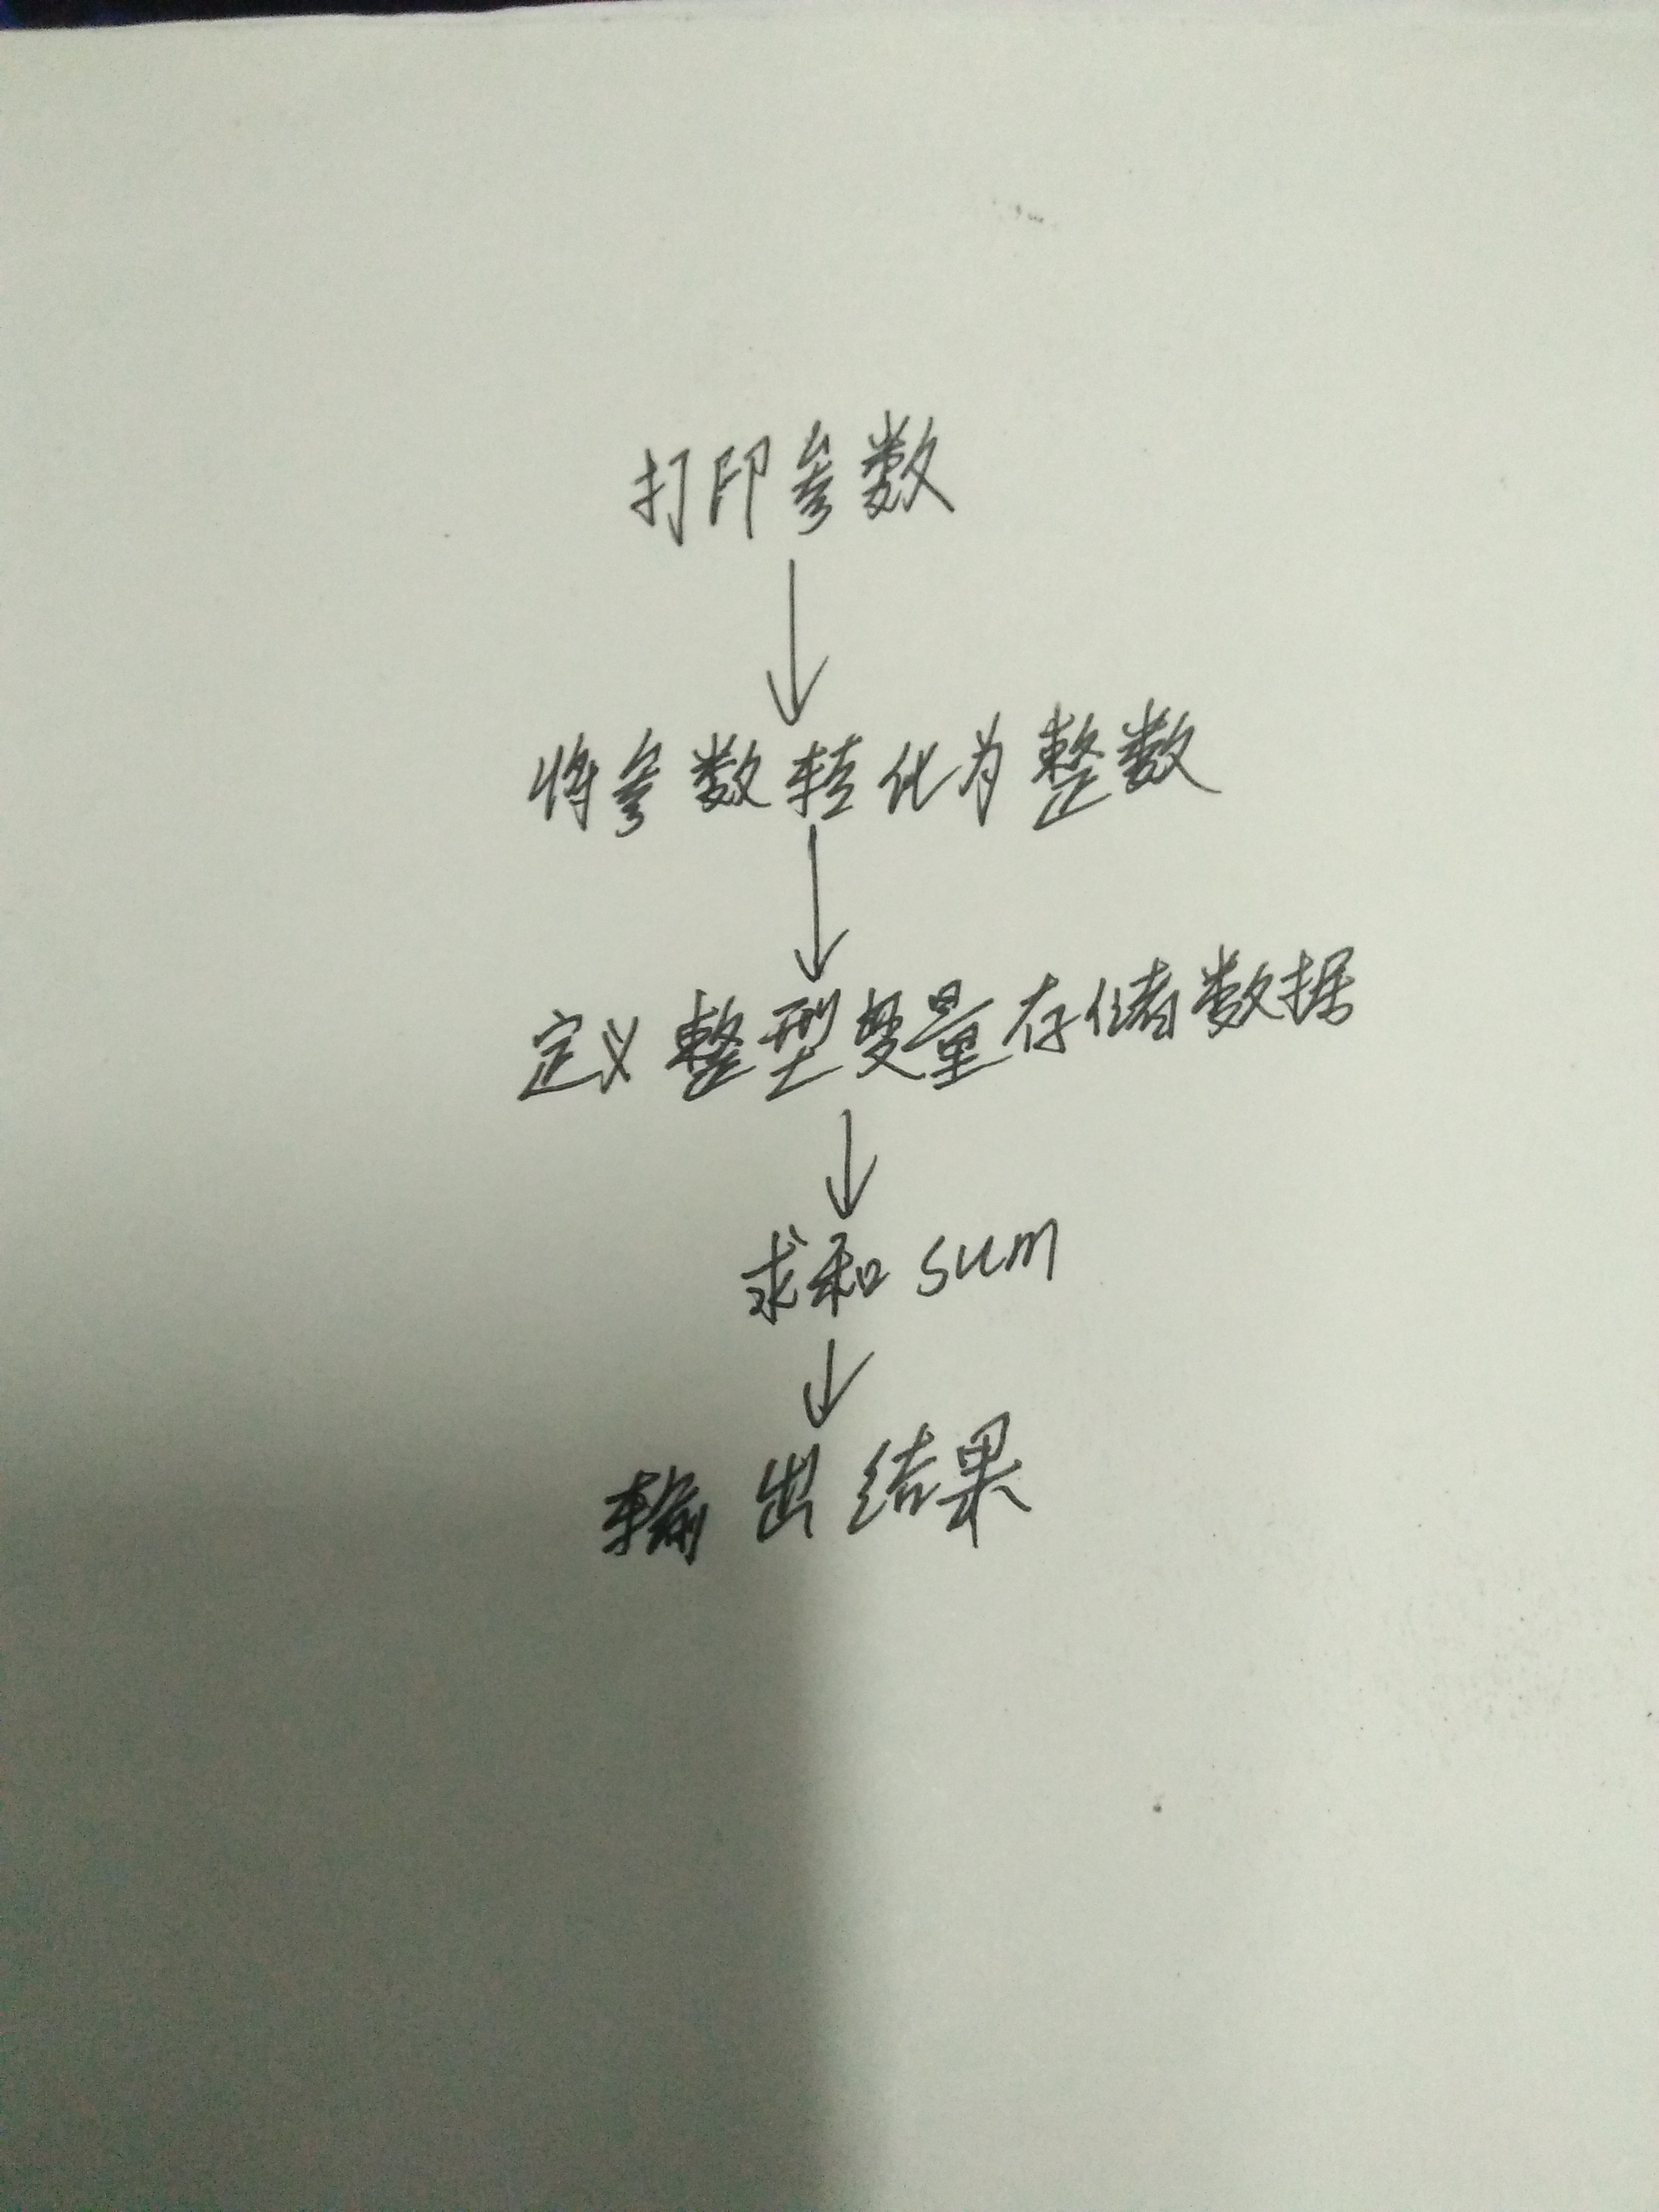 打印参数
将参数转化为整数
定义整型变量存储数据
求和 sum
输出结果